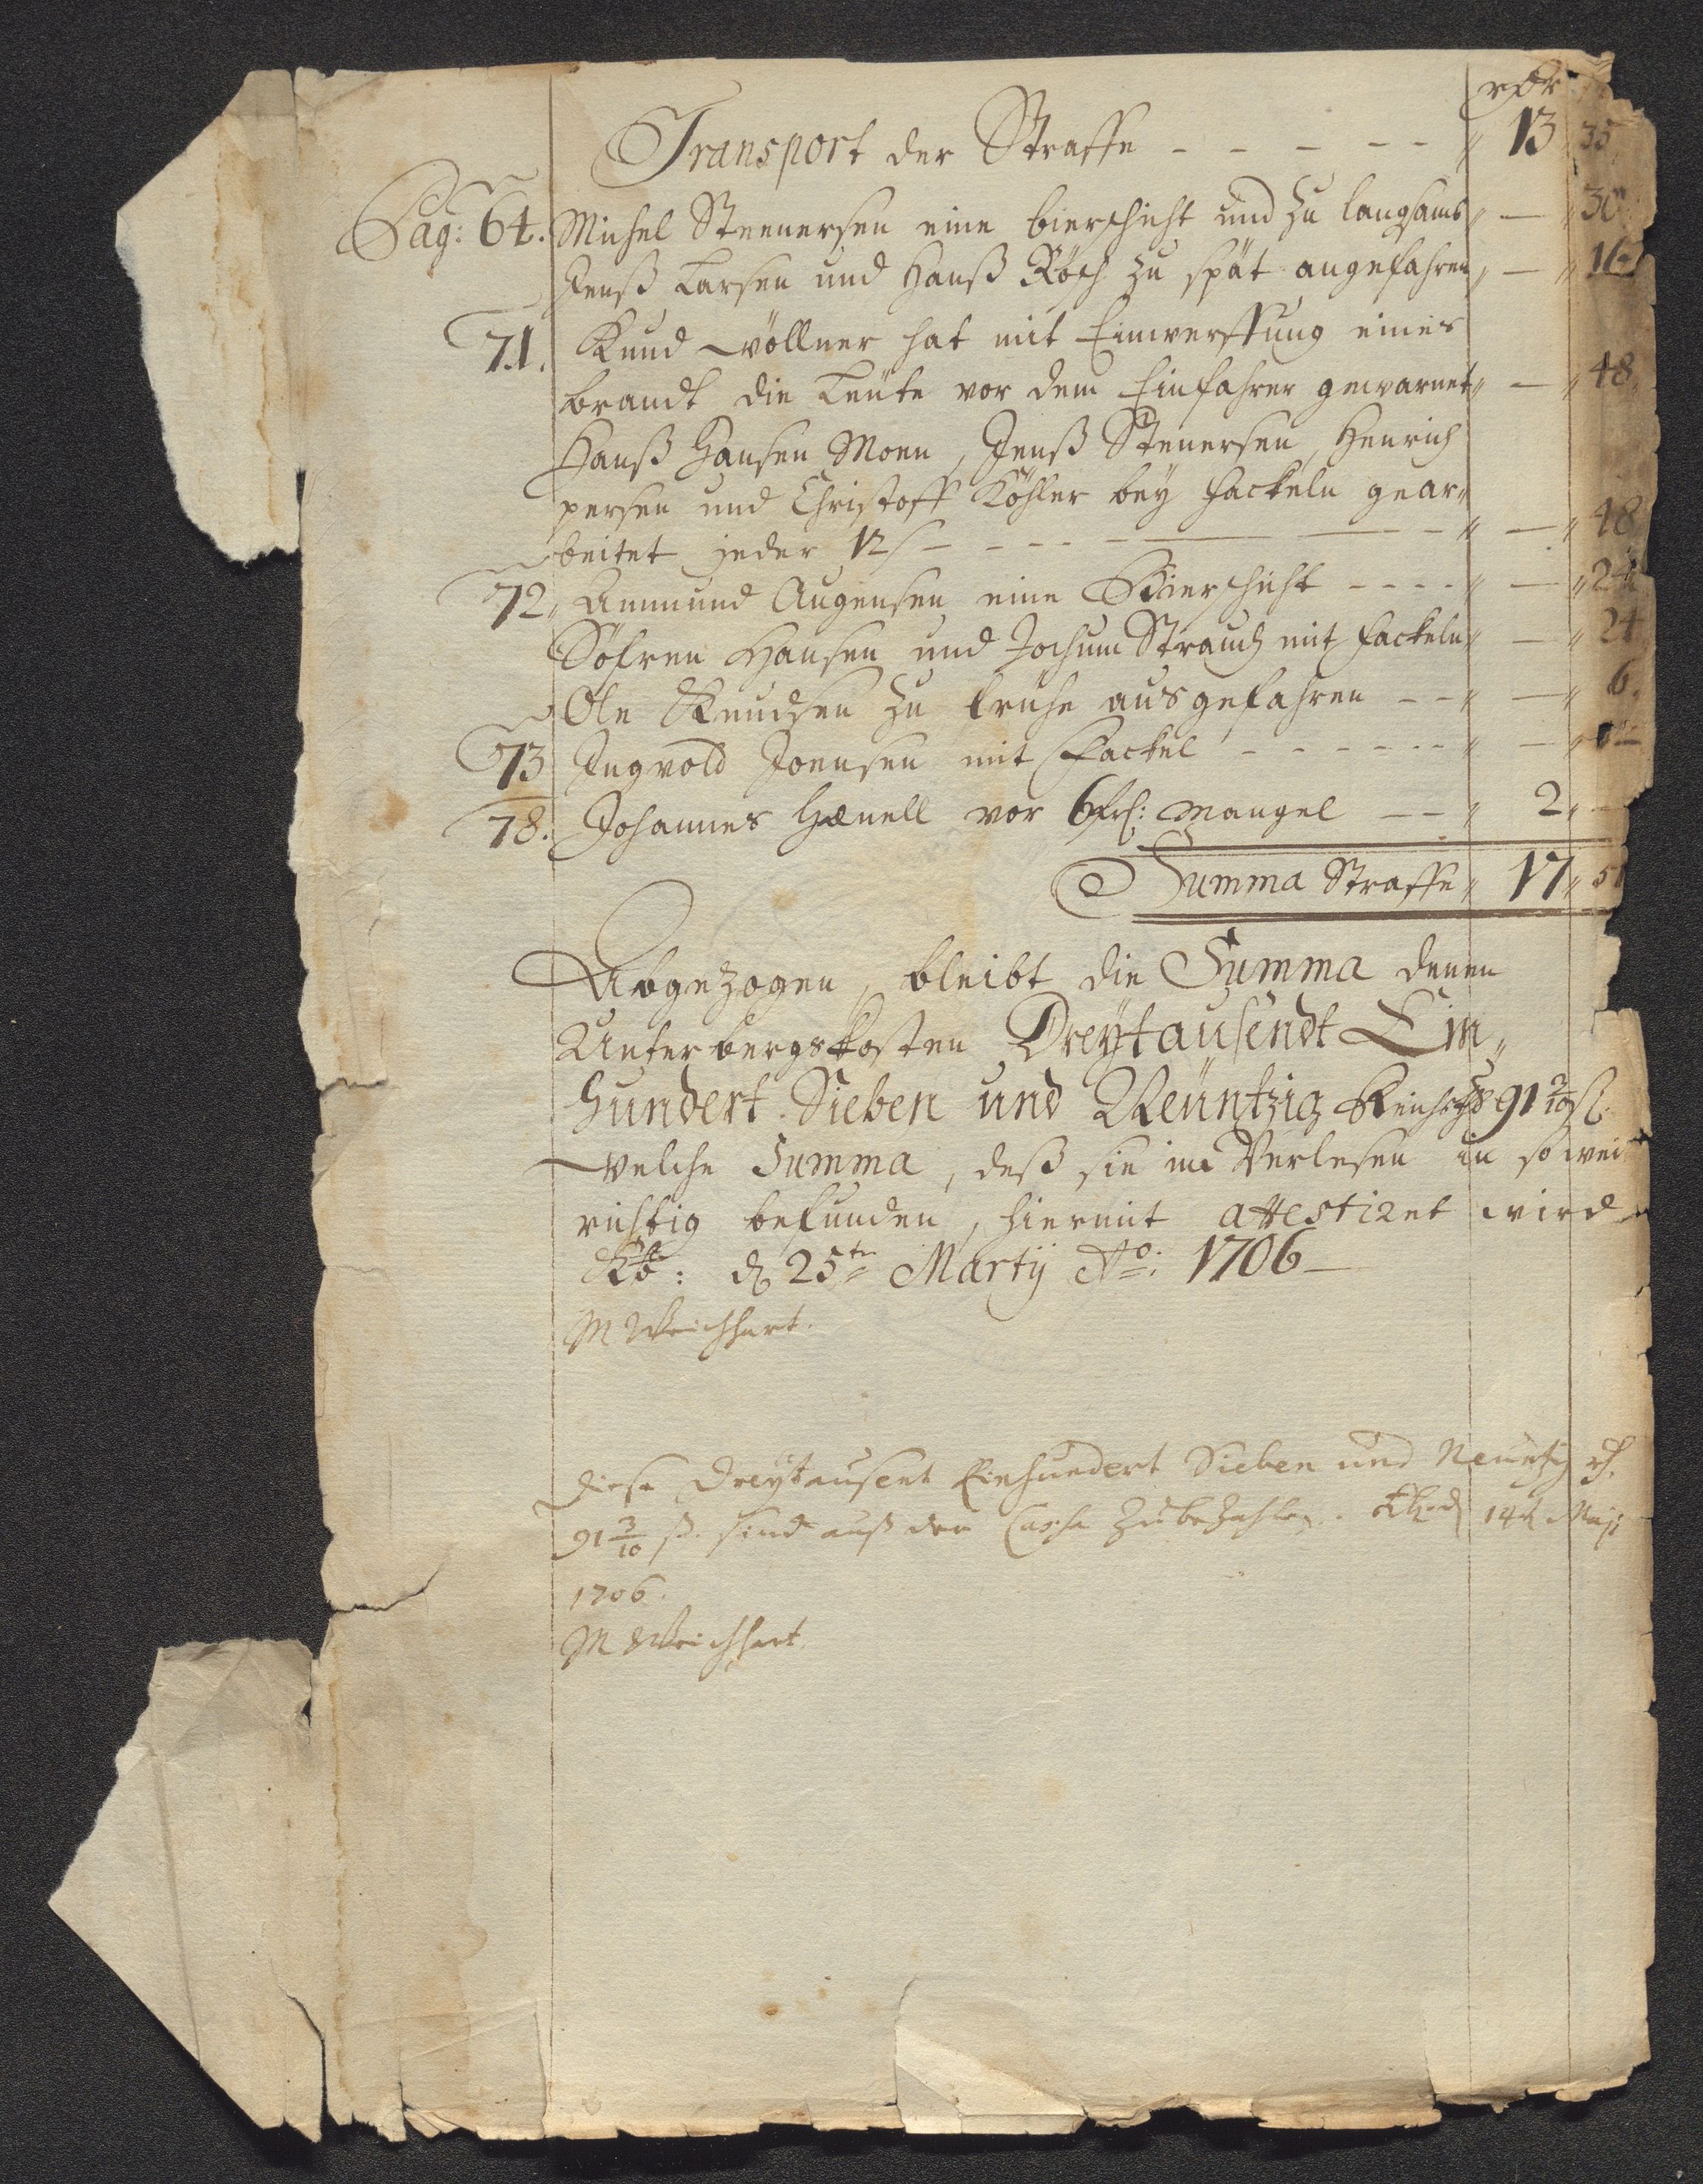 rdr
Transport der Straffe - - - - - „ 13 35
Pag: 64. Michel Steenersen eine bierschicht und zu langsam „ — „ 30
Jenß Larsen und Hanß Röch zu spät angefahren „ — „ 16
71. Knud wöllner hat mit Einwerffung eines
brandt die Leüte vor dem Einfahrer gewarnet „ — „ 48
Hanß Hansen Moen, Jenß Stenersen, Henrich
persen und Christoff Köhler bey fackeln gear„
beitet jeder 12 ß - - - - „ — „ 48
72„ Ammund Augensen eine Bierschicht - - - - „ — „ 24
Söfren Hansen und Jochum Strauch mit fackeln „ — „ 24
Ole Knudsen zu frühe ausgefahren - - „ — „ 6.
73 Ingvold Joensen mit Fackel - - - - - - „ —
78. Johannes Hænell vor 6 Mangel - - „ 2„ —
Summa Straffe „ 17„ 5
Abgezogen, bleibt die Summa denen
Unterbergskosten Dreÿtausendt Ein„
hundert Sieben und Neüntzig Reichsthr 91 3/10 ß
welche Summa, deß sie im Verlesen in so wei
richtig befunden, hiermit attestiret wird
Kb: d 25ten Martÿ Ao: 1706 —
M Weichhart.
Diese Dreÿtausent Einhundert Sieben und Neuntzig rh.
91 3/10 ß. sind auß der Cassa zubezahlen. Kb: d 14 t Maji
1706.
M Weichhart